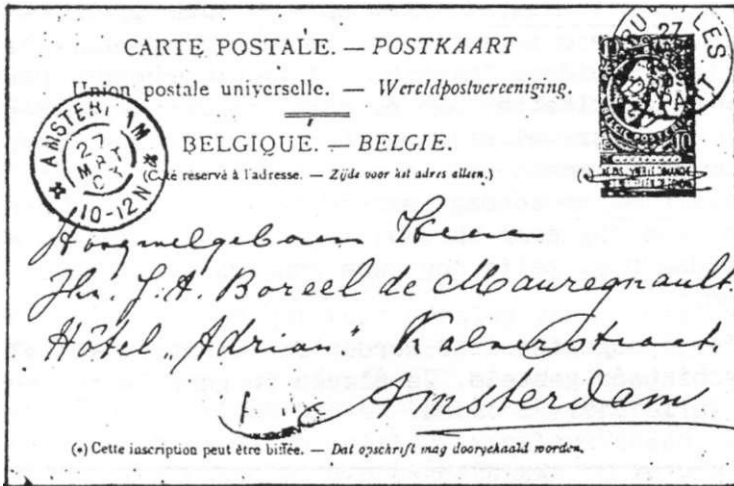 CARTE POSTALE. — POSTKAART
Union postale universelle. — Wereldpostvereeniging.
BELGIQUE. — BELGIE.
(Côté réservé à l'adresse. — Zijde voor het adres alleen.)
(*)
AMSTERDAM
27
MRT
10-12N
27
10
Hoogwelgeboren Heer
Jhr. J. A. Boreel de Mauregnault.
Hôtel „Adrian" Kalverstraat.
Amsterdam
(*) Cette inscription peut être biffée. — Dat opschrift mag doorgehaald worden.